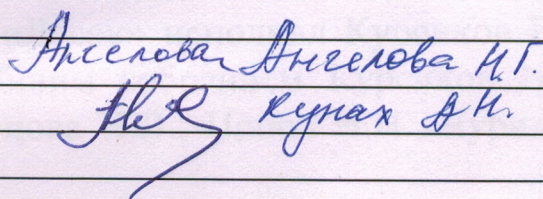 Ангелова Ангелова Н.Г.
Кунах А Н.